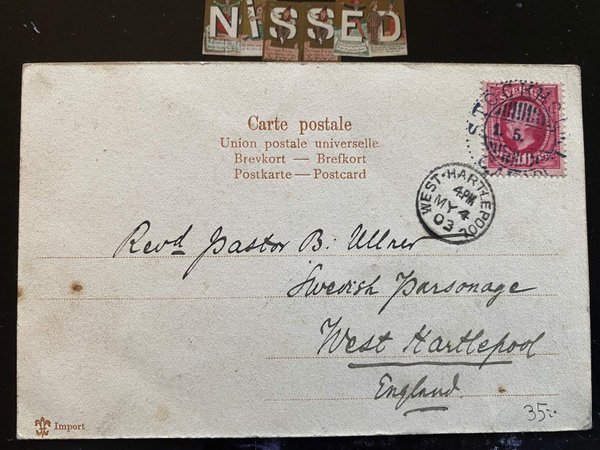 NiSSED
Carte postale
Union postale universelle
Brevkort — Brefkort
Postkarte — Postcard
STOCKHOLM
1. 5.
WEST-HARTLEPOOL
4PM
MY 4
03
Revd Pastor B. Ullner
Swedish Parsonage
West Hartlepool
England.
35:-
Import